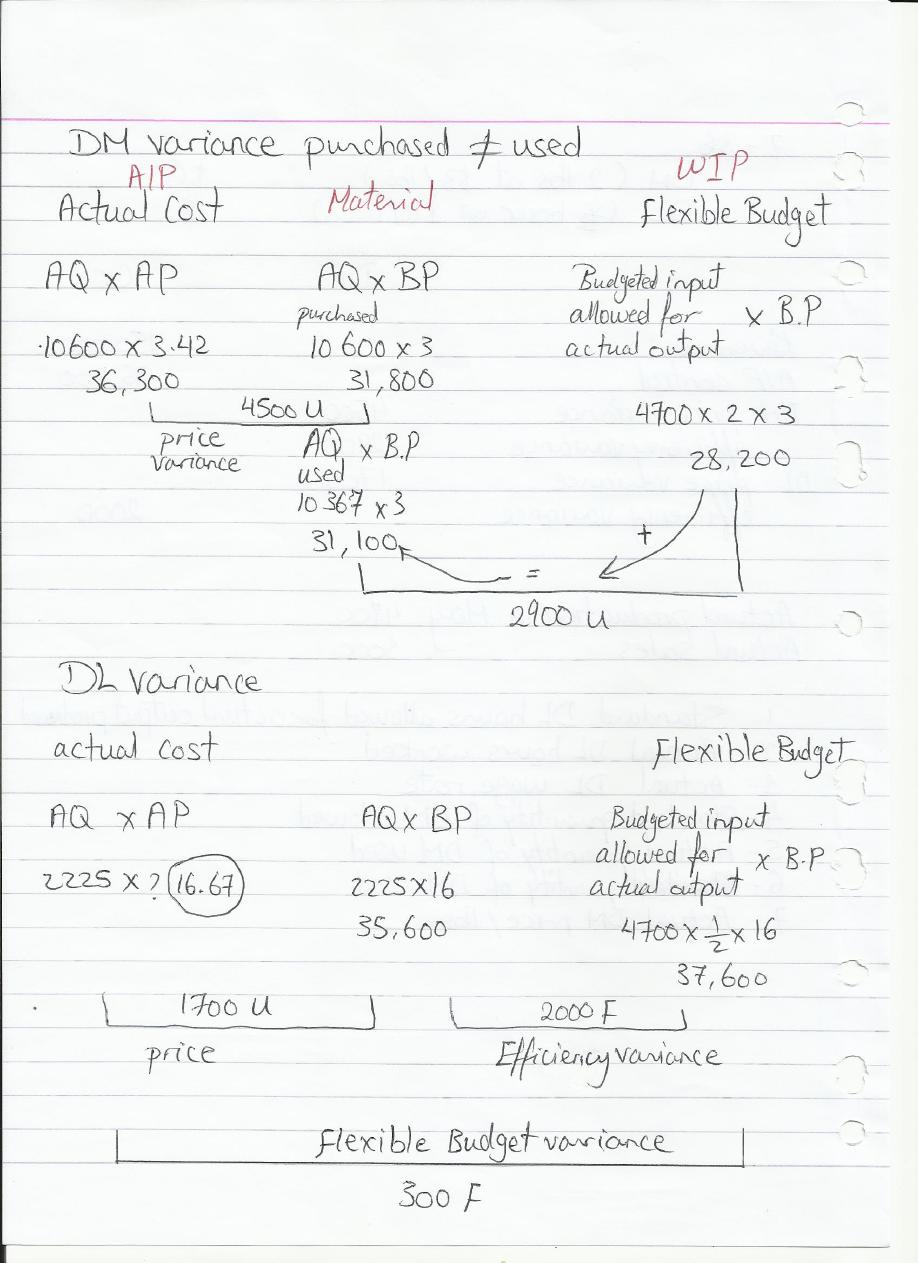 DM variance purchased ≠ used
A/P WIP
Actual Cost Material Flexible Budget
AQ x AP AQ x BP Budgeted input
purchased allowed for x B.P
10600 x 3.42 10 600 x 3 actual output
36,300 31,800
4500 U 4700 x 2 x 3
price AQ x B.P
variance used 28,200
10 367 x 3
+
31,100
=
2900 U
DL variance
actual cost Flexible Budget
AQ x AP AQ x BP Budgeted input
allowed for x B.P
2225 x ? 16.67 2225 x 16 actual output
35,600 4700 x 1/2 x 16
37,600
1700 U 2000 F
price Efficiency variance
Flexible Budget variance
300 F